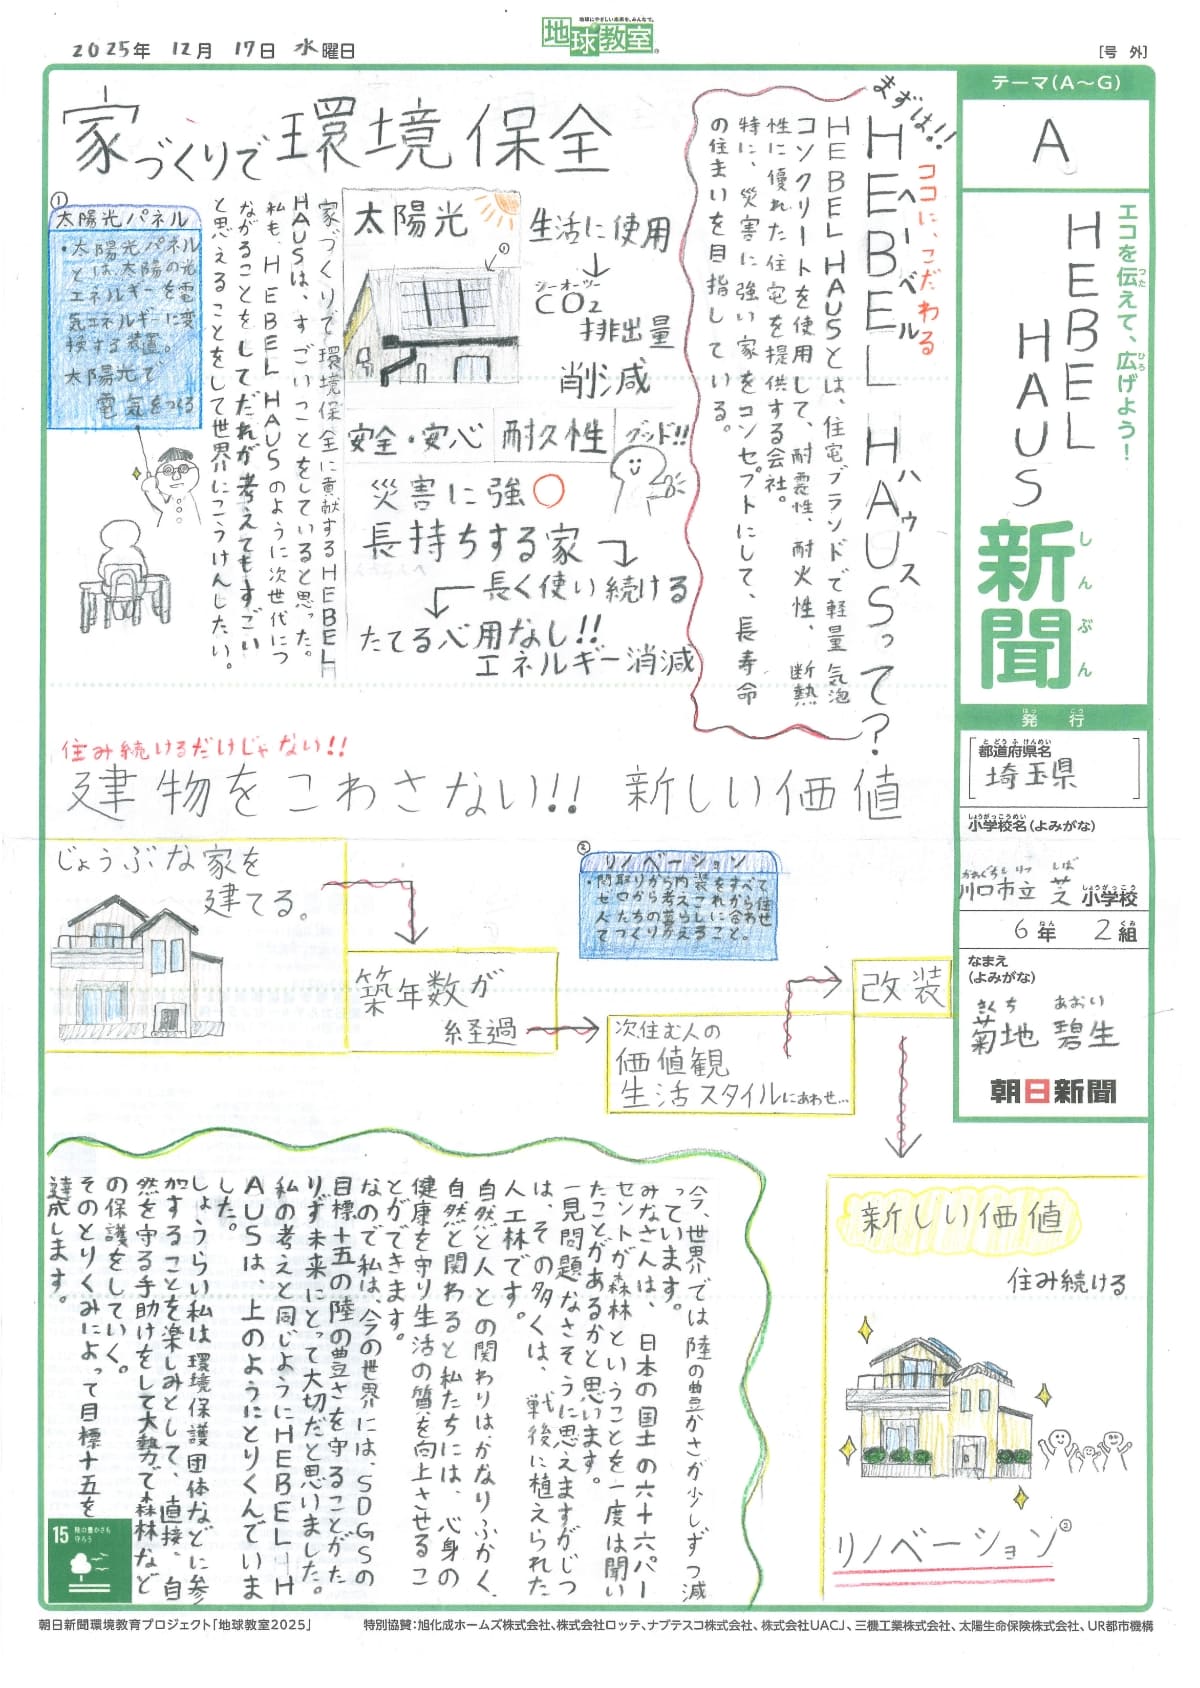 2025年 12月 17日 水曜日
地球にやさしい未来を、みんなで。
地球教室
[号 外]
テーマ(A～G)
A
エコを伝えて、広げよう!
つた
ひろ
HEBEL
HAUS
新聞
しんぶん
発行
はっ こう
都道府県名
と どう ふ けんめい
埼玉県
小学校名(よみがな)
しょうがっこうめい
かわぐちしりつ しば しょうがっこう
川口市立 芝 小学校
6年 2組
ねん くみ
なまえ
(よみがな)
きくち あおい
菊地 碧生
朝日新聞
家づくりで環境保全
まずは!!
ココに、こだわる
HEBEL HAUSって?
ヘーベル ハウス
HEBEL HAUSとは、住宅ブランドで軽量気泡
コンクリートを使用して、耐震性、耐火性、断熱
性に優れた住宅を提供する会社。
特に、災害に強い家をコンセプトにして、長寿命
の住まいを目指している。
太陽光
①
生活に使用
シーオーツー
CO2
排出量
削減
安全・安心
耐久性
グッド!!
災害に強○
長持ちする家
長く使い続ける
たてる必用なし!!
エネルギー消減
家づくりで環境保全に貢献するHEBEL
HAUSは、すごいことをしていると思った。
私も、HEBEL HAUSのように次世代につ
ながることをしてだれが考えてもすごい
と思えることをして世界にこうけんしたい。
①
太陽光パネル
・太陽光パネル
とは、太陽の光
エネルギーを電
気エネルギーに変
換する装置。
太陽光で
電気をつくる
住み続けるだけじゃない!!
建物をこわさない!! 新しい価値
じょうぶな家を
建てる。
築年数が
経過
②
リノベーション
次住む人の
価値観
生活スタイルにあわせ…
改装
新しい価値
住み続ける
リノベーション②
今、世界では陸の豊かさが少しずつ減
っています。
みなさんは、日本の国土の六十六パー
セントが森林ということを一度は聞い
たことがあるかと思います。
一見問題なさそうに思えますがじつ
は、その多くは、戦後に植えられた
人工林です。
自然と人との関わりはかなりふかく、
自然と関わると私たちには、心身の
健康を守り生活の質を向上させるこ
とができます。
なので私は、今の世界には、SDGSの
目標十五の陸の豊さを守ることがた
りず未来にとって大切だと思いました。
私の考えと同じようにHEBEL H
AUSは、上のようにとりくんでいま
した。
しょうらい私は環境保護団体などに参
加することを楽しみとして、直接、自
然を守る手助けをして大勢で森林など
の保護をしていく。
そのとりくみによって目標十五を
達成します。
15 陸の豊かさも
守ろう
朝日新聞環境教育プロジェクト「地球教室2025」 特別協賛:旭化成ホームズ株式会社、株式会社ロッテ、ナブテスコ株式会社、株式会社UACJ、三機工業株式会社、太陽生命保険株式会社、UR都市機構